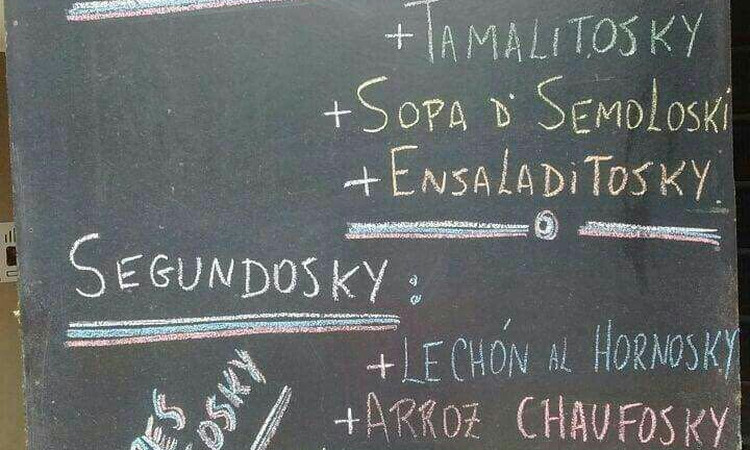 +Tamalitosky
+Sopa d' Semoloski
+Ensaladitosky.
Segundosky:
+Lechón al Hornosky
+Arroz Chaufosky